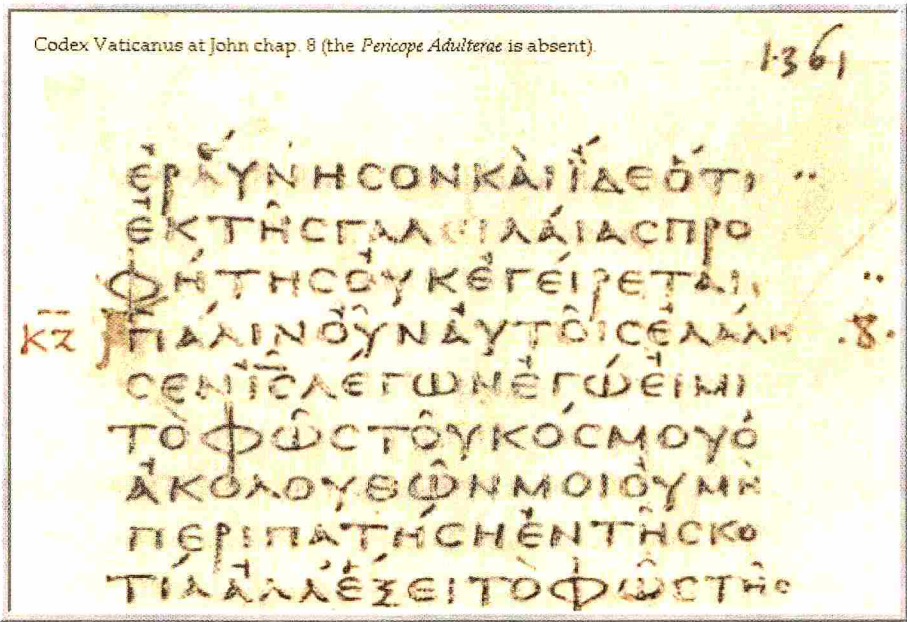 Codex Vaticanus at John chap. 8 (the Pericope Adulterae is absent).
1361
ἐραύνησον κὰι ἴδε ὅτι
ἐκ τῆς γαλειλάιας προ
φήτης ὀυκ ἐγείρεται
κζ πάλιν ὀῦν ἀυτοῖς ἐλάλη .8.
σεν ι̅ς̅ λέγων ἐγώ ἐιμι
τὸ φῶς τοῦ κόσμου ὁ
ἀκολουθῶν μοι ὀυ μὴ
περιπατήση ἐν τῆ σκο
τία ἀλλ' ἕξει τὸ φῶς τῆς